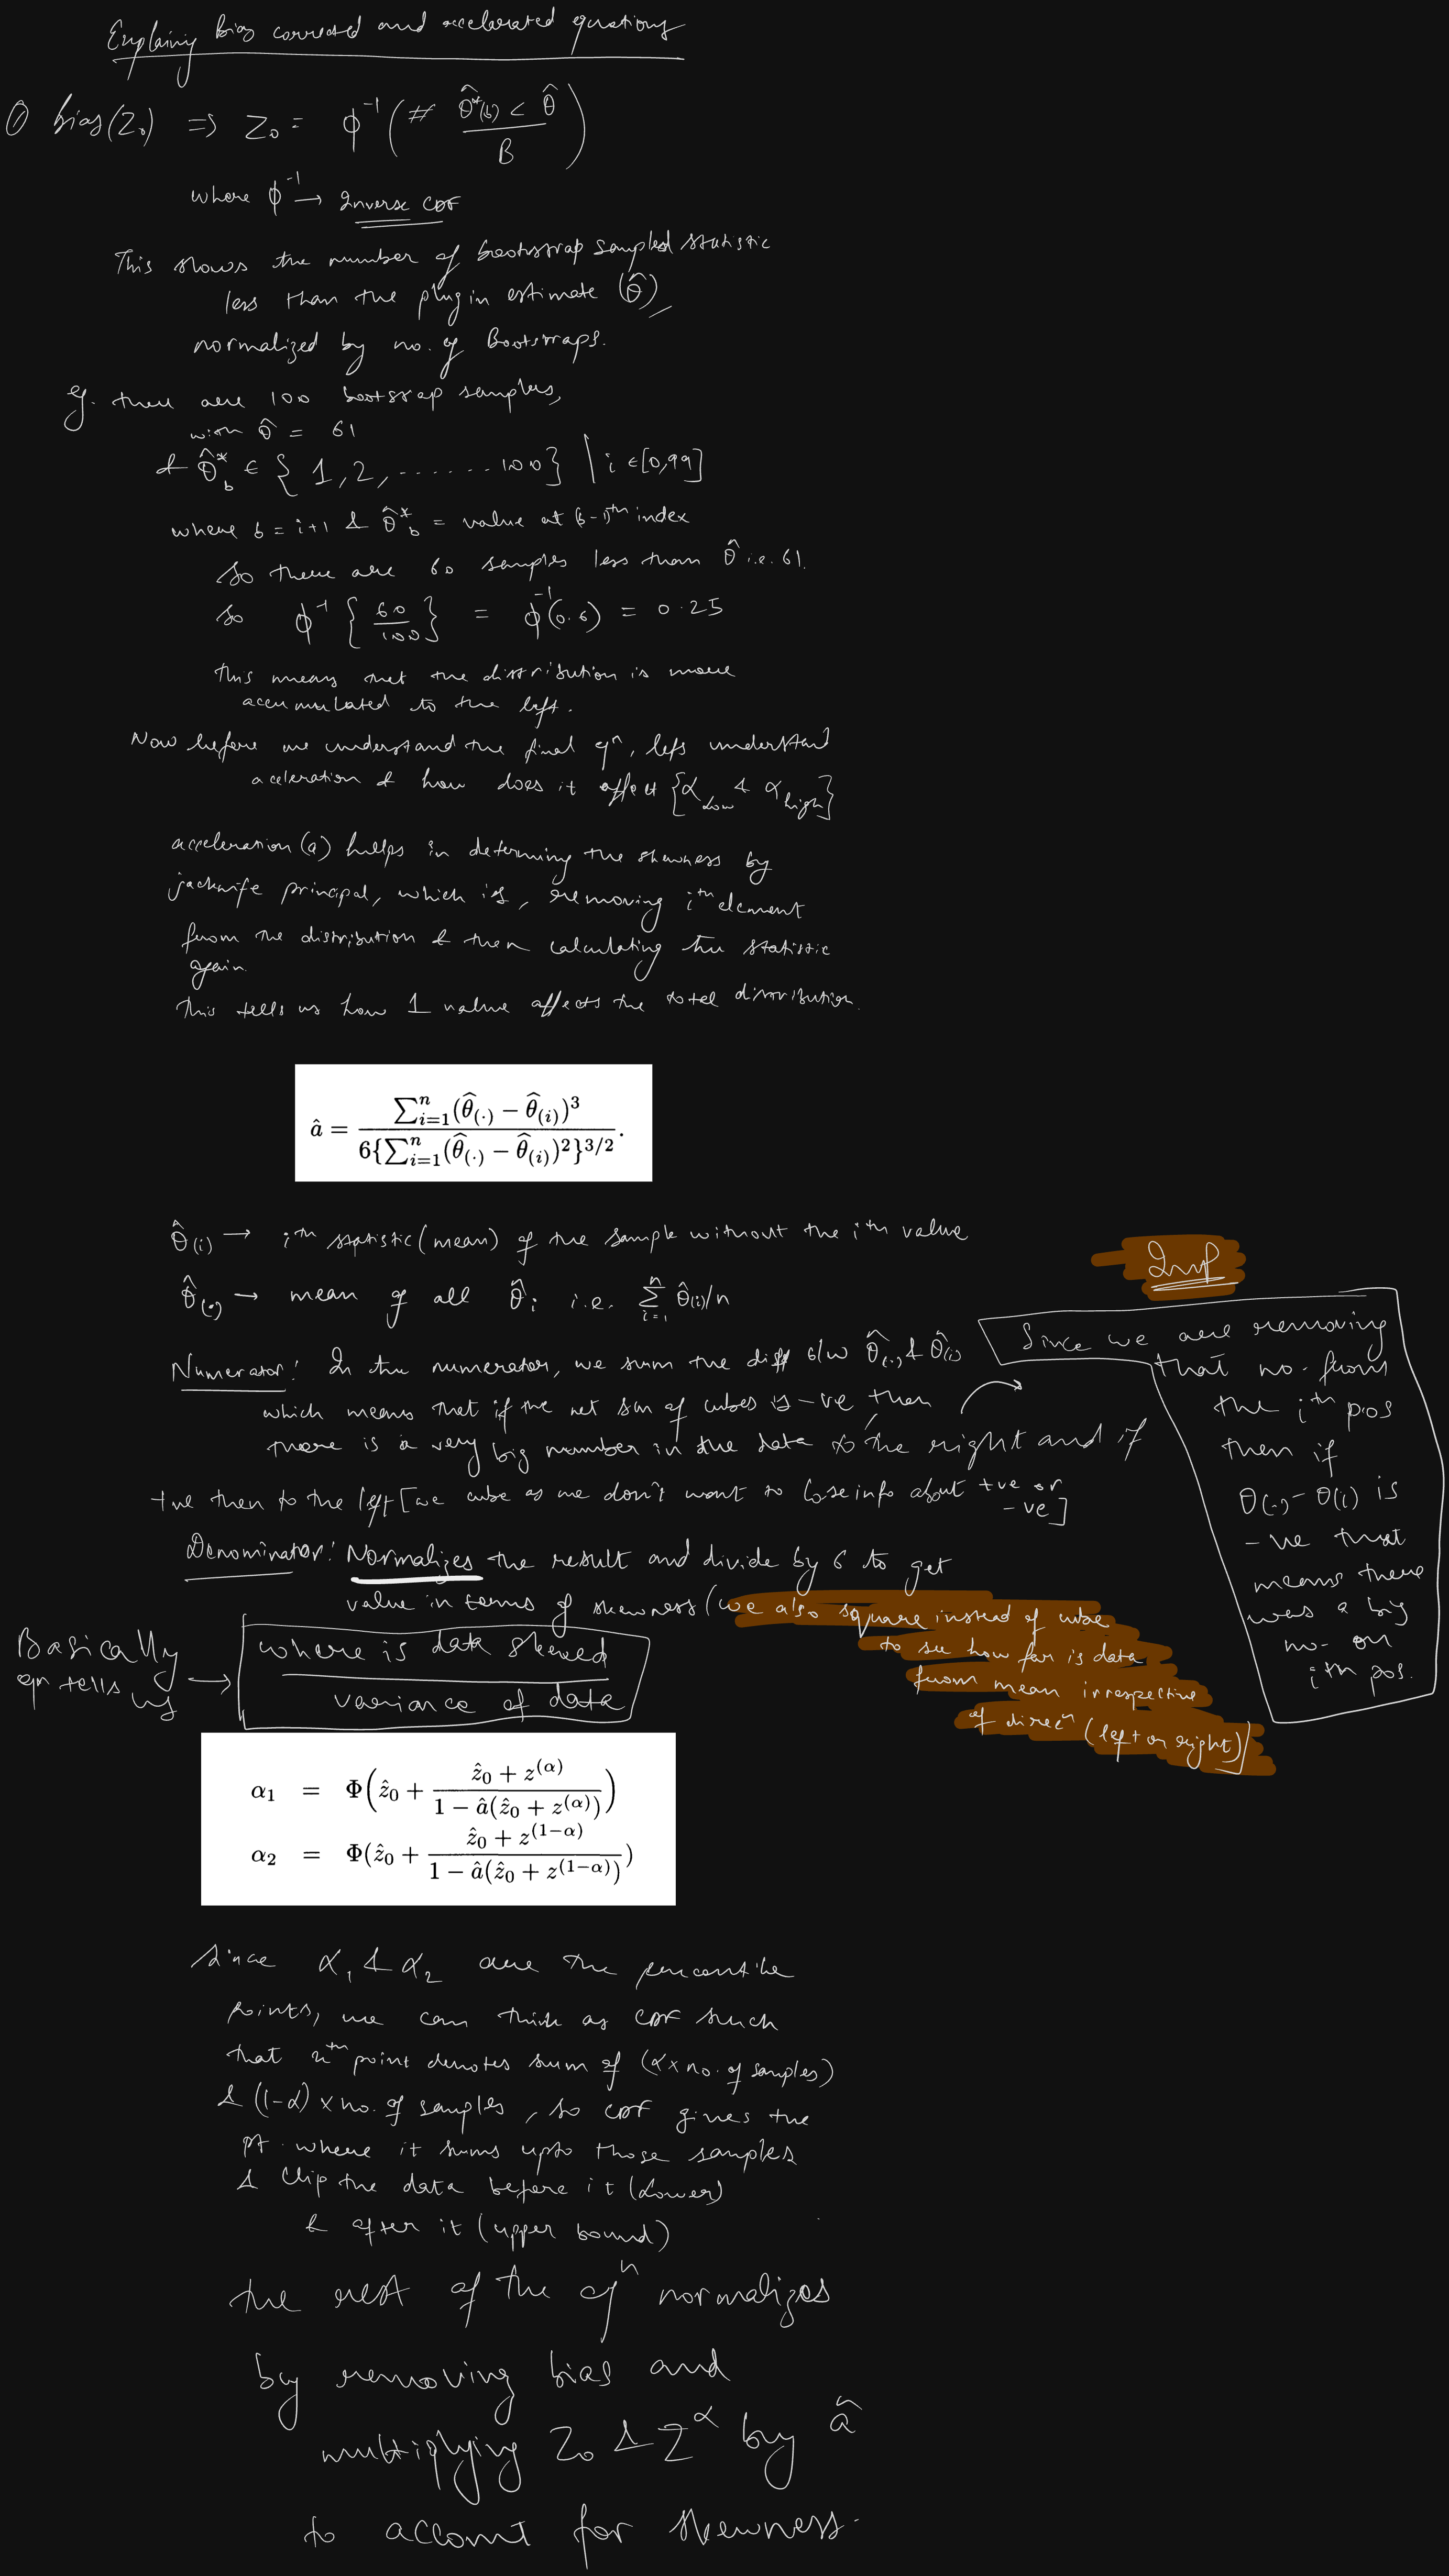 Explaining bias corrected and accelerated equations
① bias(Z₀) ⇒ Z₀ = ϕ⁻¹ ( # θ̂*(b) < θ̂ / B )
where ϕ⁻¹ → Inverse CDF
This shows the number of bootstrap sampled statistic
less than the plugin estimate (θ̂),
normalized by no. of Bootstraps.
eg. there are 100 bootstrap samples,
with θ̂ = 61
& θ̂*b ∈ { 1, 2, ....... 100 } | i ∈ [0,99]
where b = i+1 & θ̂*b = value at (b-1)th index
So there are 60 samples less than θ̂ i.e. 61.
So ϕ⁻¹ { 60/100 } = ϕ⁻¹(0.6) = 0.25
this means that the distribution is more
accumulated to the left.
Now before we understand the final eqn, lets understand
aceleration & how does it affect {α low & α high}
acceleration (a) helps in determing the skewness by
jacknife principal, which is, removing ith element
from the distribution & then calculating the statistic
again.
This tells us how 1 value affects the total distribution.
â = ∑ⁿᵢ₌₁(θ̂(·) − θ̂(i))³ / 6{∑ⁿᵢ₌₁(θ̂(·) − θ̂(i))²}³ᐟ².
θ̂(i) → ith statistic (mean) of the sample without the ith value
θ̂(·) → mean of all θ̂i i.e. ∑ⁿᵢ₌₁ θ̂(i)/n
Numerator: In the numerator, we sum the diff b/w θ̂(·) & θ̂(i)
which means that if the net sum of cubes is -ve then
there is a very big number in the data to the right and if
+ve then to the left [we cube as we don't want to lose info about +ve or
-ve]
Imp
Since we are removing
that no. from
the ith pos
then if
θ(·) - θ(i) is
-ve that
means there
was a big
no. on
ith pos.
Denominator: Normalizes the result and divide by 6 to get
value in terms of skewness (we also square instead of cube
to see how far is data
from mean irrespective
of direcn (left or right))
Basically
eqn tells us →
where is data skewed
variance of data
α₁ = Φ(ẑ₀ + (ẑ₀ + z^(α)) / (1 − â(ẑ₀ + z^(α))))
α₂ = Φ(ẑ₀ + (ẑ₀ + z^(1−α)) / (1 − â(ẑ₀ + z^(1−α))))
Since α₁ & α₂ are the percentile
points, we can think as CDF such
that nth point denotes sum of (α × no. of samples)
& (1-α) × no. of samples, so CDF gives the
pt. where it sums upto those samples
& Clip the data before it (Lower)
& after it (upper bound)
the rest of the eqn normalizes
by removing bias and
multiplying Z₀ & Z^α by â
to account for skewness.